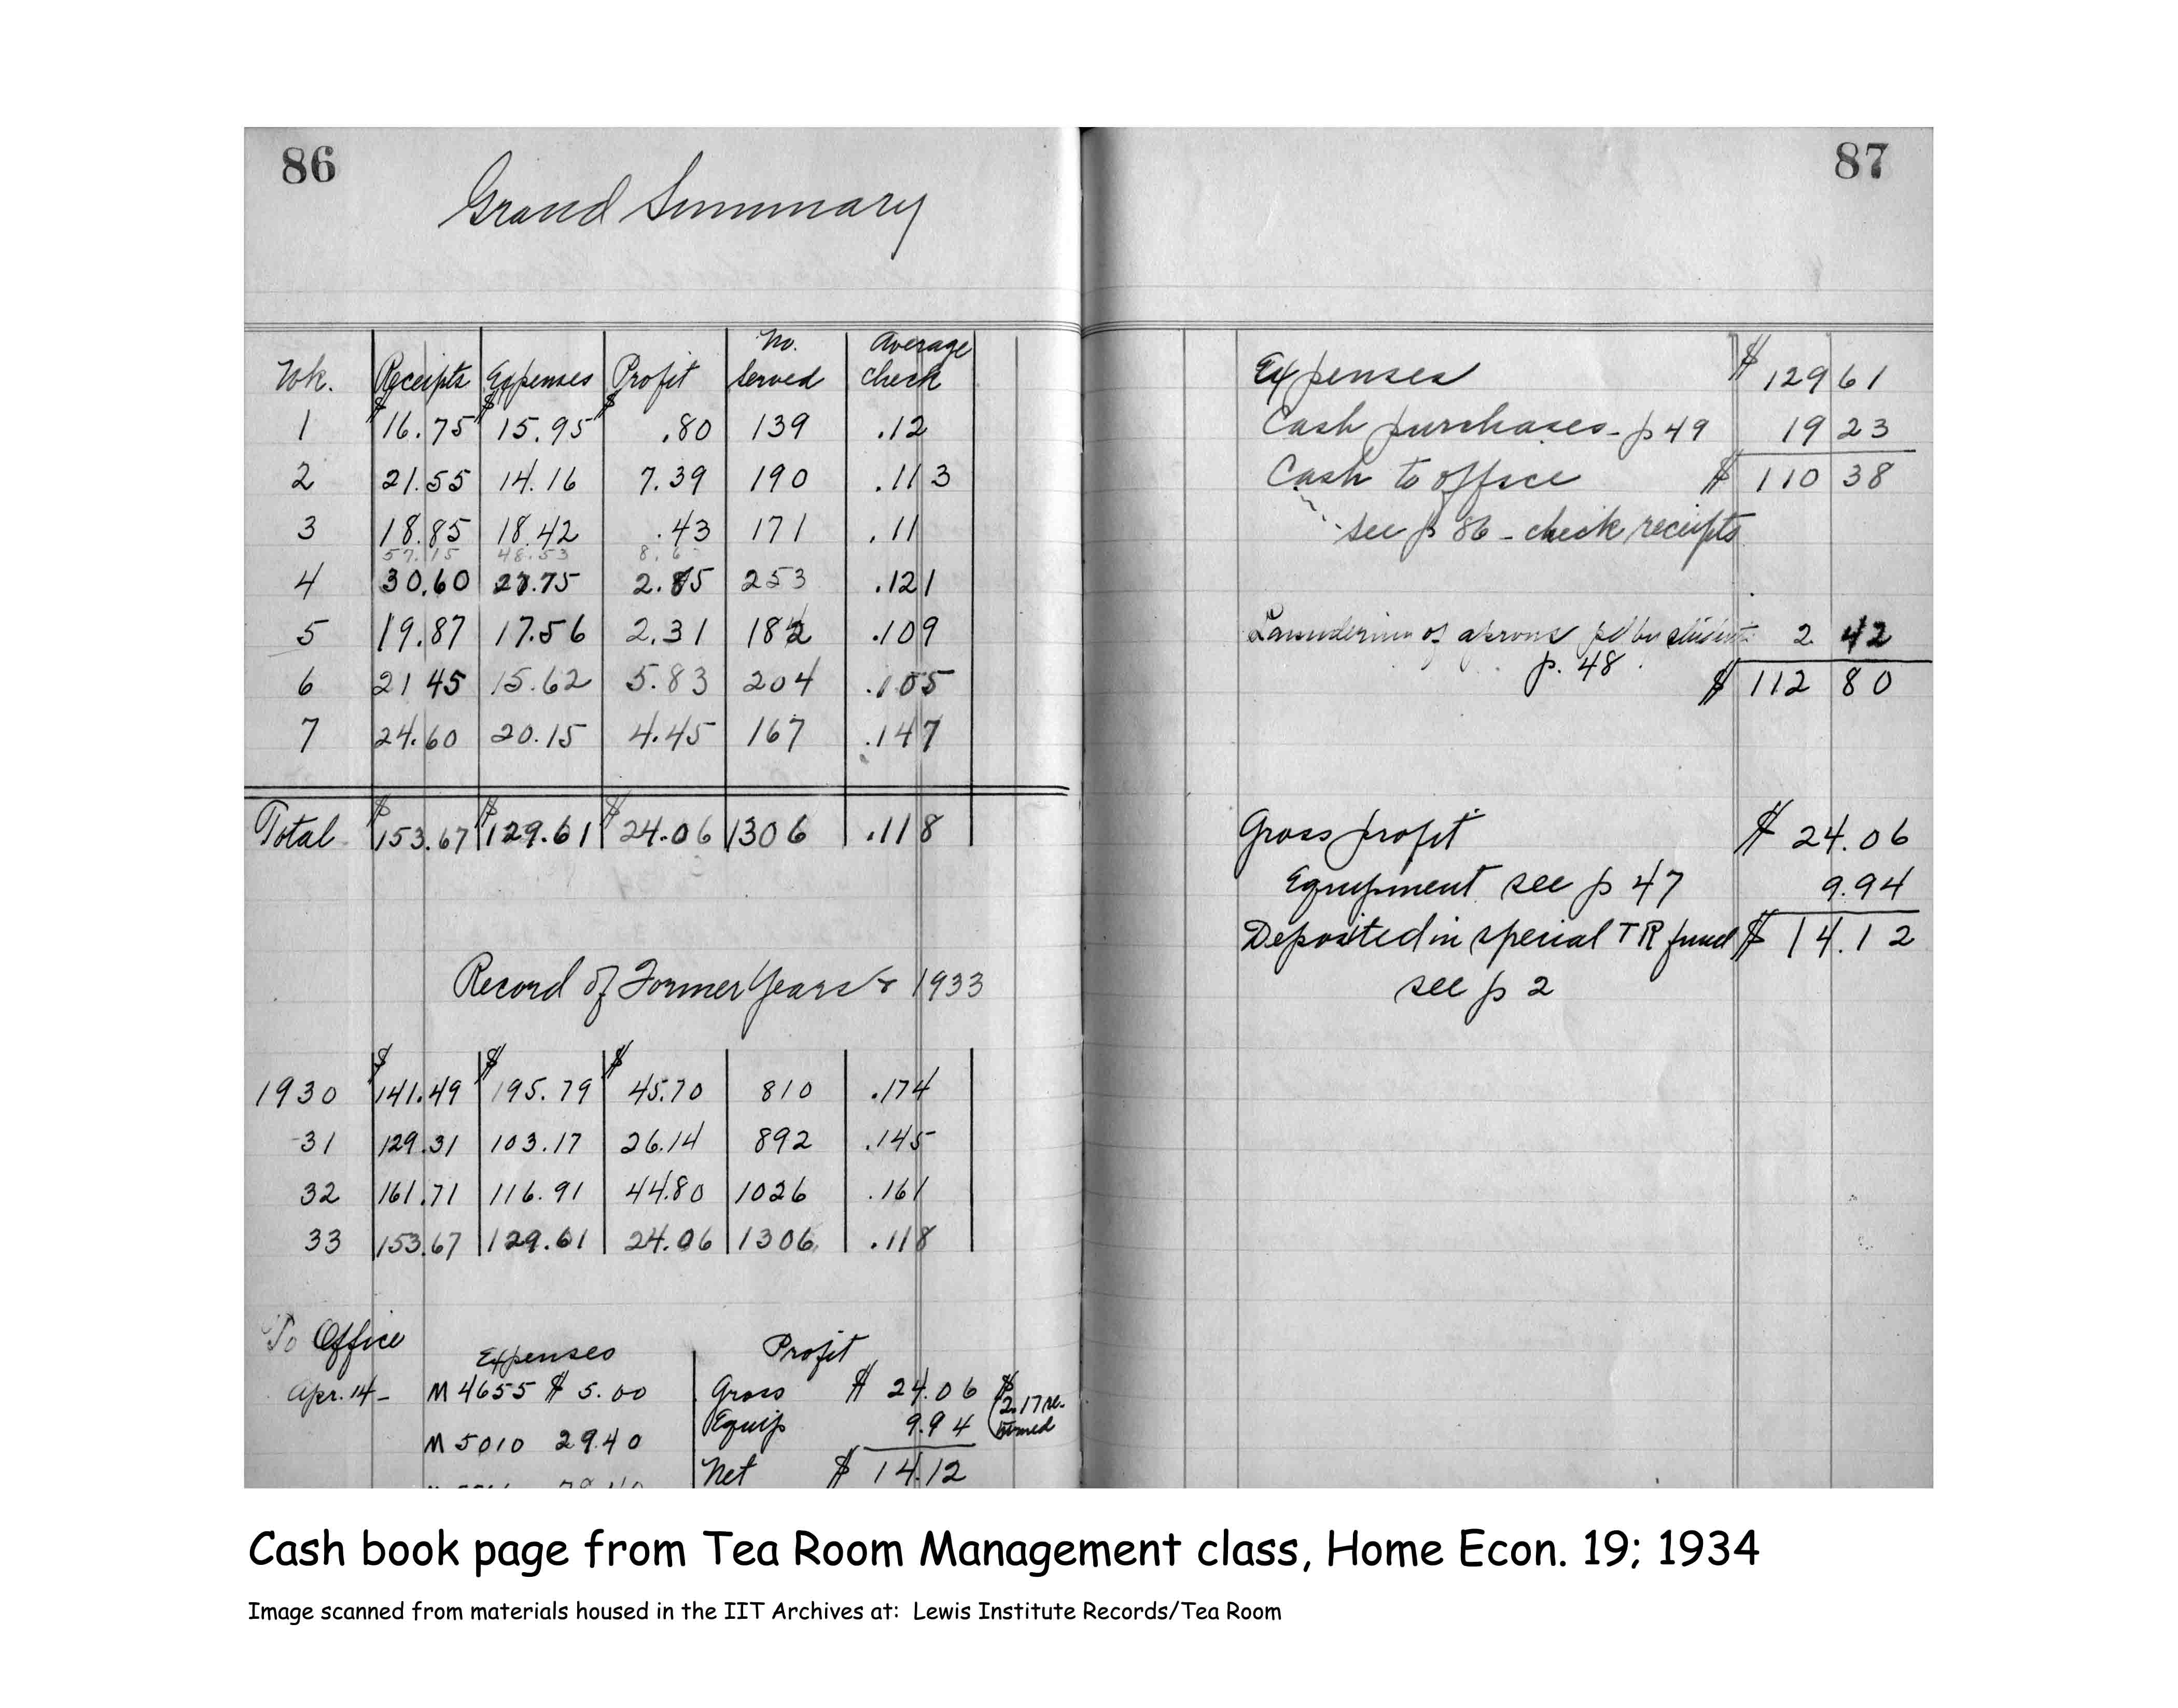 86
Grand Summary
Wk. Receipts Expenses Profit No. served Average check
1 $16.75 $15.95 $ .80 139 .12
2 21.55 14.16 7.39 190 .113
3 18.85 18.42 .43 171 .11
57.15 48.53
4 30.60 27.75 2.85 253 .121
5 19.87 17.56 2.31 182 .109
6 21 45 15.62 5.83 204 .105
7 24.60 20.15 4.45 167 .147
Total $153.67 $129.61 $24.06 1306 .118
Record of Former Years & 1933
1930 $141.49 $195.79 $45.70 810 .174
31 129.31 103.17 26.14 892 .145
32 161.71 116.91 44.80 1026 .161
33 153.67 129.61 24.06 1306 .118
To Office
Expenses Profit
Apr. 14 - M 4655 $ 5.00 Gross $ 24.06 $2.17 re-
Equip 9.94 turned
M 5010 29.40
Net $ 14.12
87
Expenses $ 129 61
Cash purchases - p 49 19 23
Cash to office $ 110 38
see p 86 - check receipts
Laundering of aprons pd by students 2 42
p. 48 $ 112 80
Gross profit $ 24.06
Equipment see p 47 9.94
Deposited in special TR fund $ 14.12
see p 2
Cash book page from Tea Room Management class, Home Econ. 19; 1934
Image scanned from materials housed in the IIT Archives at: Lewis Institute Records/Tea Room